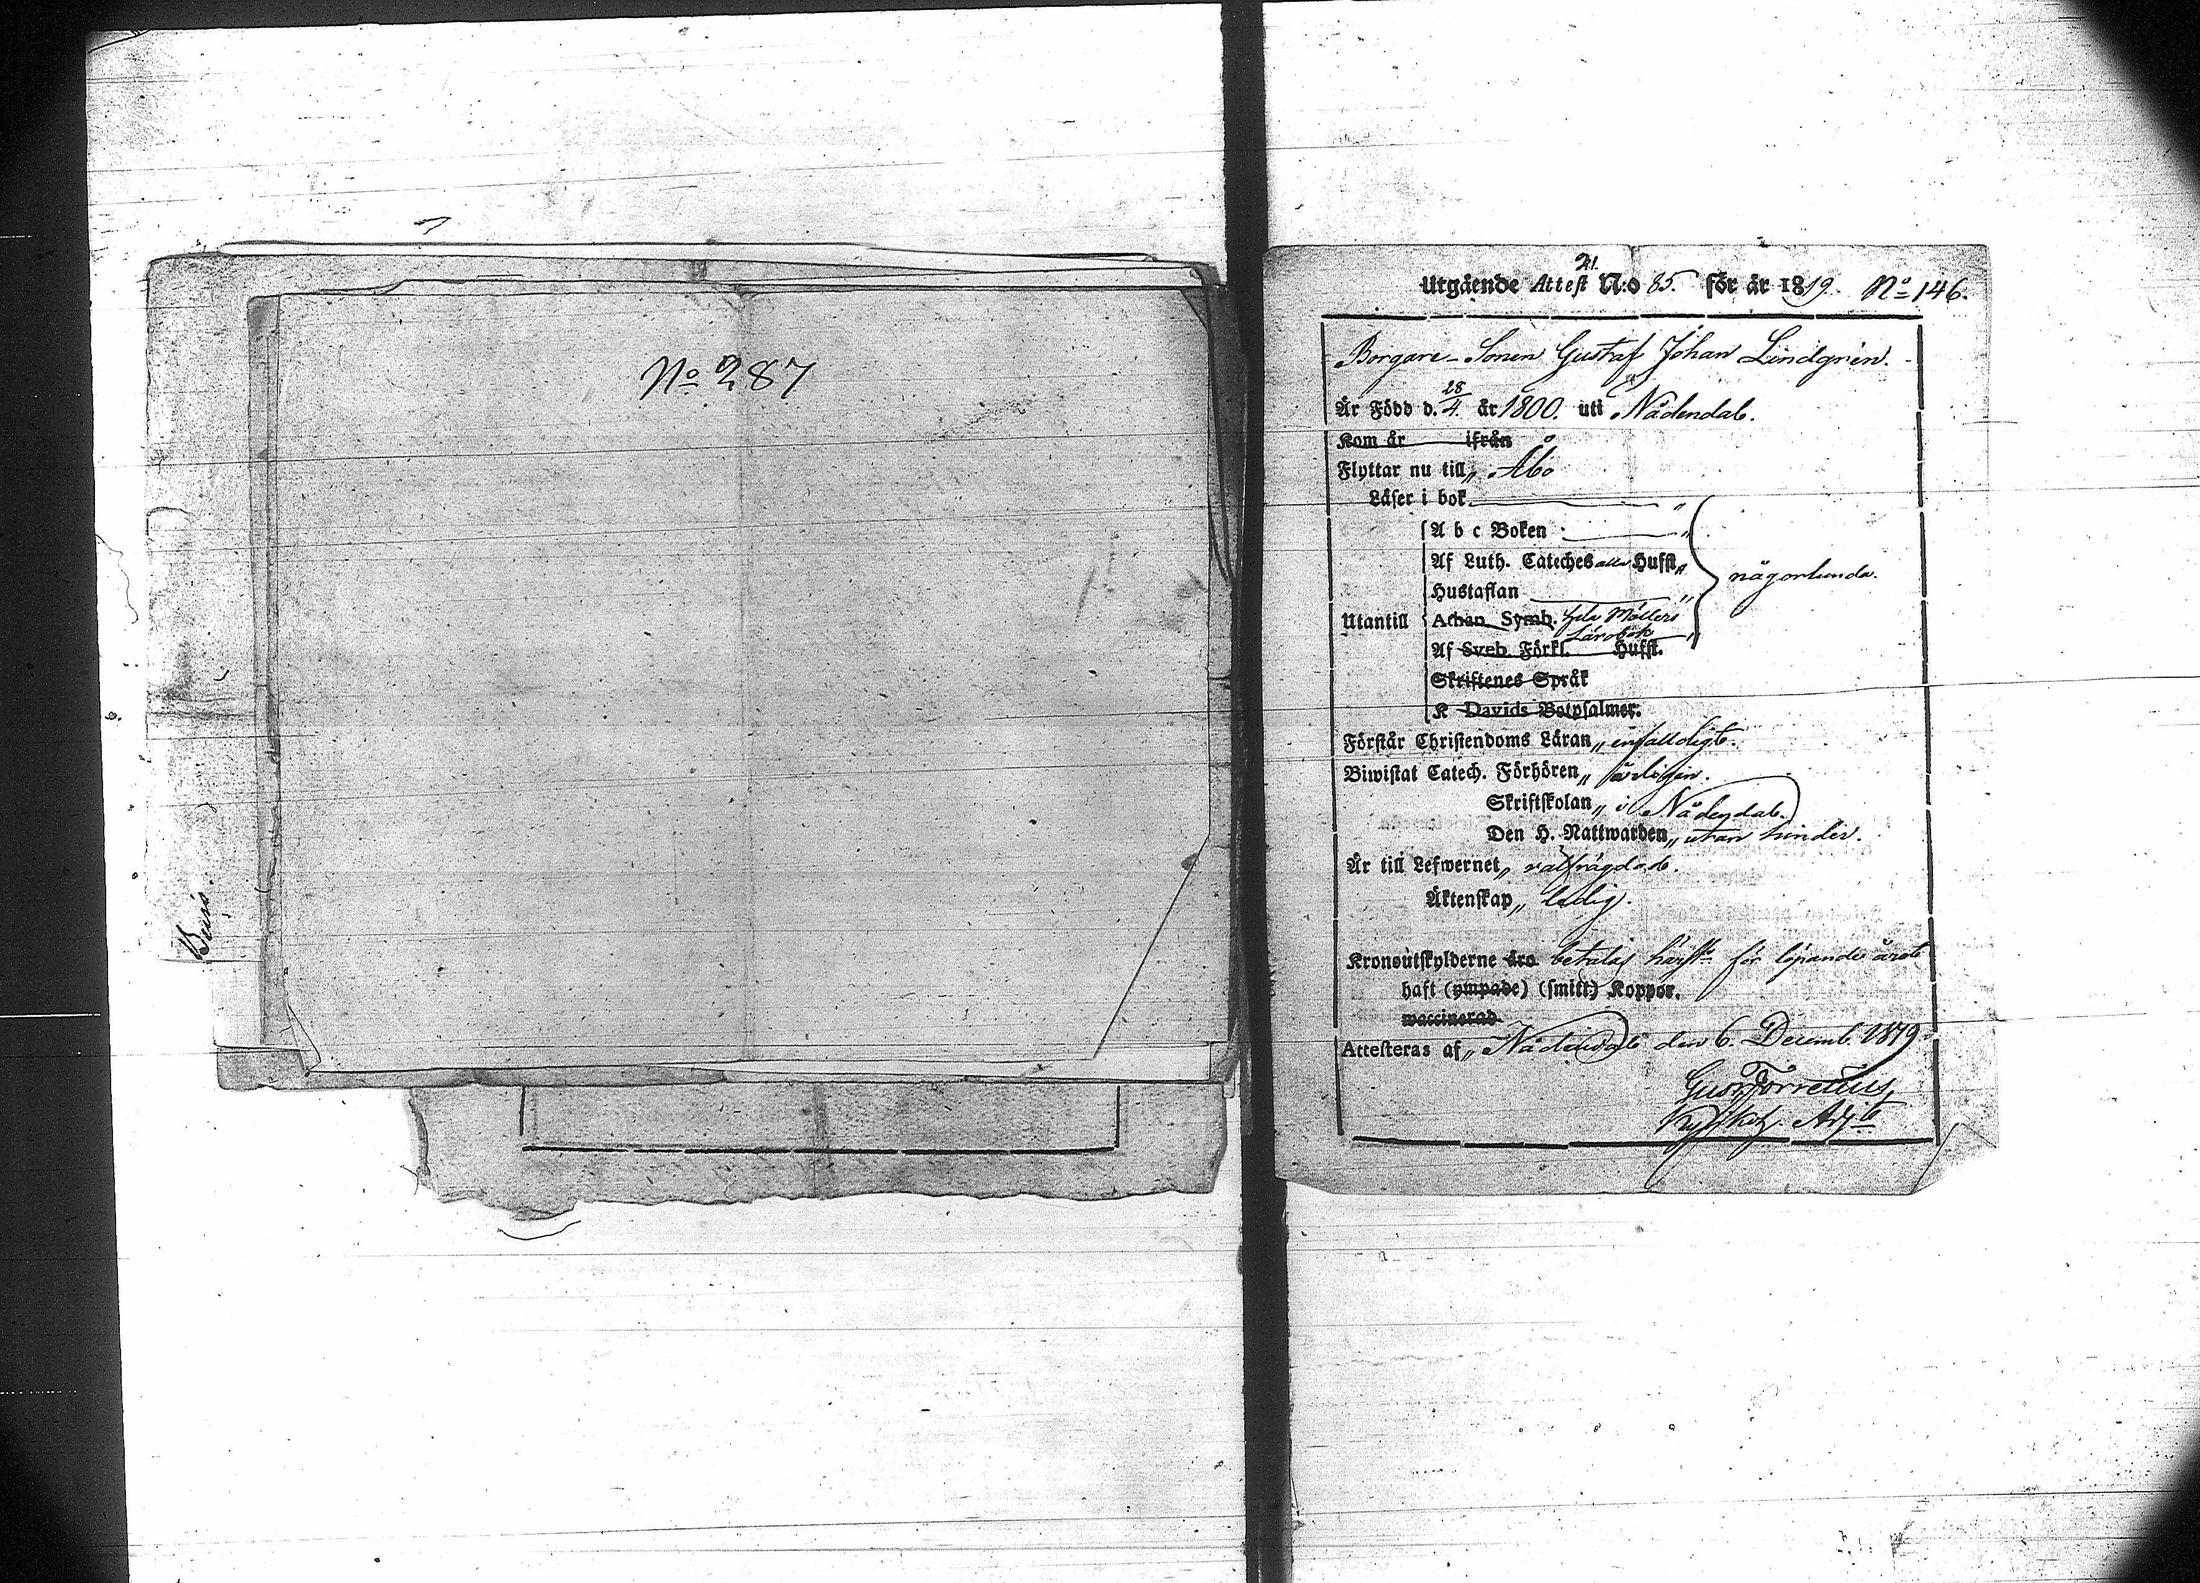 No 287
Buis.
21.
Utgående Attest N:o 85. för år 1819. No 146.
Borgare-Sonen Gustaf Johan Lindgrén.
Är Född d. 28/4 år 1800. uti Nådendal.
Kom år ifrån
Flyttar nu till „ Åbo
Läser i bok „
A b c Boken „
Af Luth. Cateches alla Hufst. „
någorlunda.
Hustaflan „
Utantill Athan. Symb. hela Möllers
Lärobok „
Af Sveb. Förkl. Hufst.
Skriftenes Språk
K Davids Botpsalmer.
Förstår Christendoms Läran „ enfalldigt.
Biwistat Catech. Förhören „ årligen.
Skriftskolan „ i Nådendal.
Den H. Nattwarden „ utan hinder.
Är till Lefwernet „ välfrägdad.
Äktenskap „ ledig.
Kronoutskylderne äro betalas för löpande året
haft (ympade) (smitt) Koppor.
waccinerad
Attesteras af „ Nådendal den 6. Decemb. 1819
Gust Torrelius,
Adjt